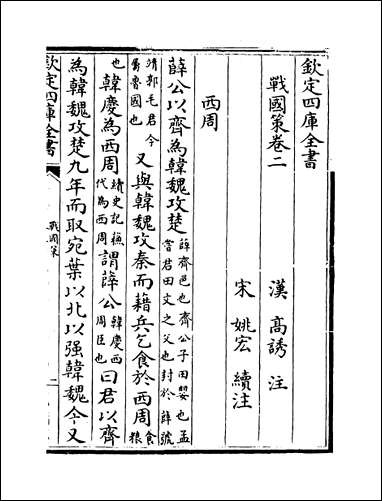 欽定四庫全書
戰國策卷二
漢 高誘 注
宋 姚宏 續注
西周
薛公以齊為韓魏攻楚薛齊邑也齊公子田嬰也孟嘗君田文之父也封於薛號
靖郭毛君今屬魯國也又與韓魏攻秦而藉兵乞食於西周食糧
也韓慶為西周續史記蘓代為西周謂薛公韓慶西周臣也曰君以齊
為韓魏攻楚九年而取宛葉以北以强韓魏今又
欽定四庫全書
戰國策